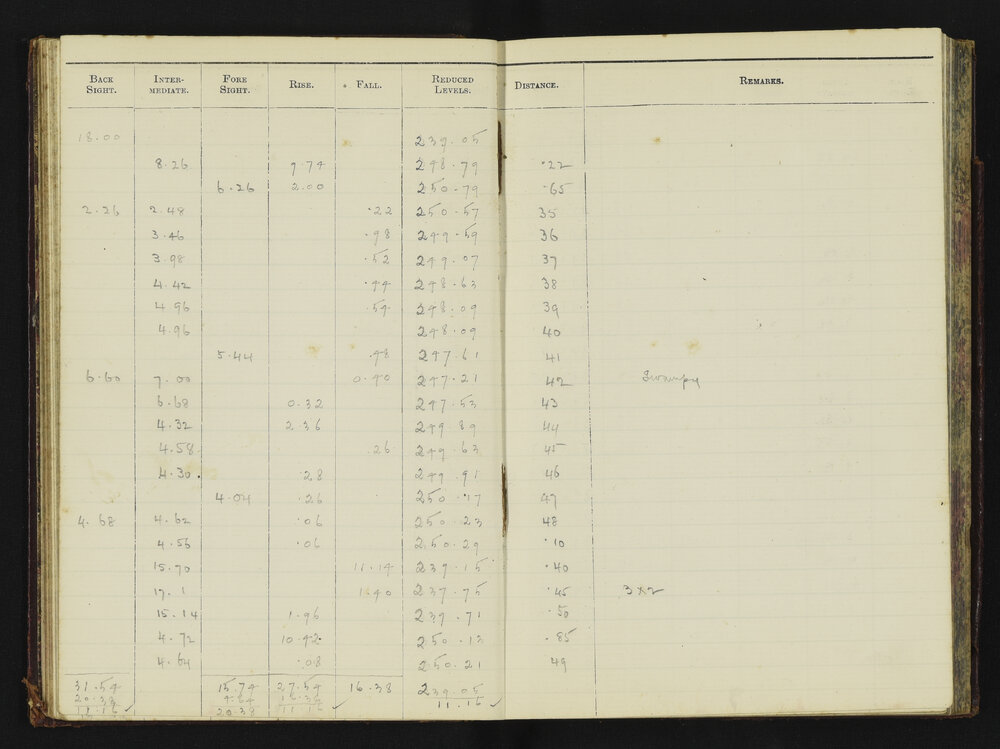 BACK SIGHT. INTER-MEDIATE. FORE SIGHT. RISE. FALL. REDUCED LEVELS. DISTANCE. REMARKS.
18.00 239.05
8.26 9.74 248.79 .22
6.26 2.00 250.79 .65
2.26 2.48 .22 250.57 35
3.46 .98 249.59 36
3.98 .52 249.07 37
4.42 .44 248.63 38
4.96 .54 248.09 39
4.96 248.09 40
5.44 .48 247.61 41
6.60 7.00 0.40 247.21 42 Swampy
6.68 0.32 247.53 43
4.32 2.36 249.89 44
4.58 .26 249.63 45
4.30 .28 249.91 46
4.04 .26 250.17 47
4.68 4.62 .06 250.23 48
4.56 .06 250.29 .10
15.70 11.14 239.15 .40
17.1 1.40 237.75 .45 3 x 2
15.14 1.96 239.71 .50
4.72 10.42 250.13 .85
4.64 .08 250.21 49
31.54 15.74 27.54 16.38 239.05
20.38 4.64 16.38 11.16 ✓
11.16 ✓ 20.38 11.16 ✓